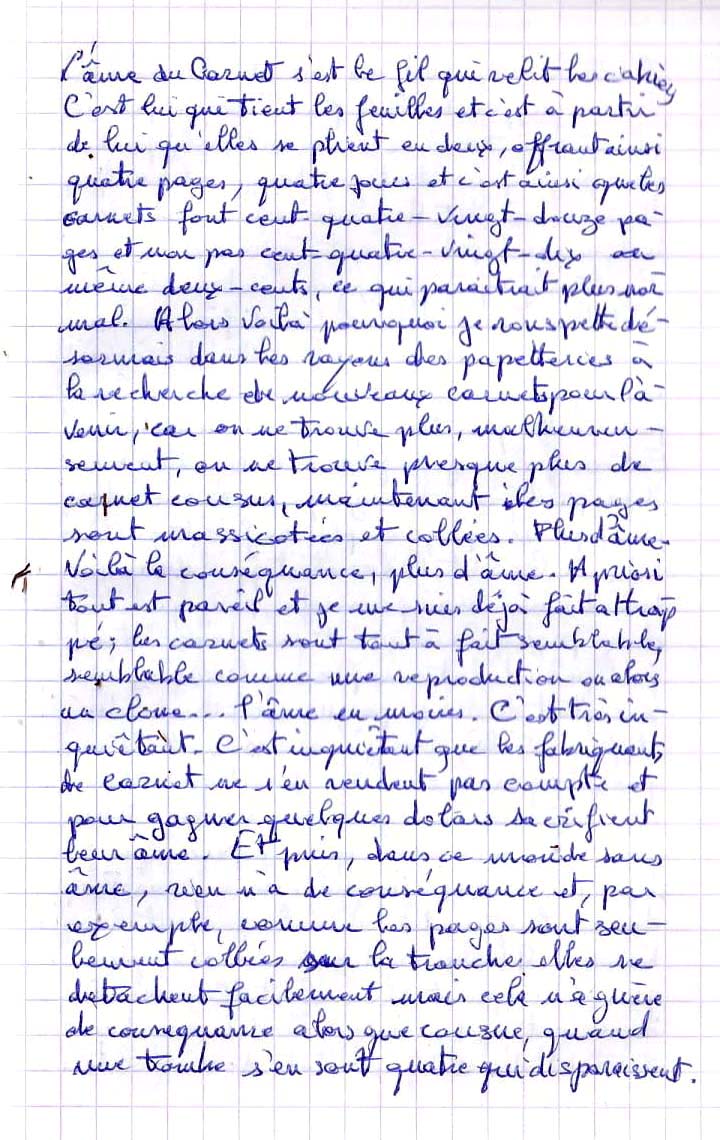 L'âme du Carnet s'est le fil qui relit les cahiers
C'est lui qui tient les feuilles et c'est à partir
de lui qu'elles se plient en deux, offrant ainsi
quatre pages, quatre joues et c'est ainsi que les
carnets font cent-quatre-vingt-douze pa-
ges et non pas cent-quatre-vingt-dix ou
même deux-cents, ce qui paraîtrait plus nor
mal. Alors voilà pourquoi je rouspette dé-
sormais dans les rayons des papetteries à
la recherche de nouveaux carnets pour l'à-
venir, car on ne trouve plus, malheureu-
sement, on ne trouve presque plus de
carnet cousus, maintenant les pages
sont massicotées et collées. Plus d'âme.
Voilà la conséquance, plus d'âme. A priori
tout est pareil et je me suis déjà fait attrap
pé; les carnets sont tout à fait semblable,
semblable comme une reproduction ou alors
un clone... l'âme en moins. C'est très in-
quiêtant. C'est inquiêtant que les fabriquants
de carnet ne s'en rendent pas compte et
pour gagner quelques dolars sacrifient
leur âme. Et puis, dans ce monde sans
âme, rien n'a de conséquance et, par
exemple, comme les pages sont seu-
lement collées sur la tranche elles se
détachent facilement mais cela n'a guère
de consequance alors que cousue, quand
une tombe s'en sont quatre qui disparaissent.